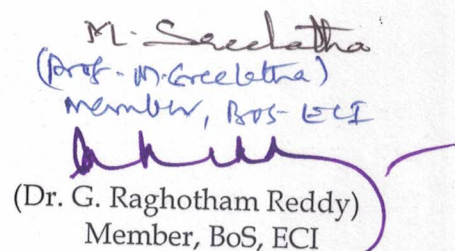 M. Sreelatha
(Prof. M. Sreelatha)
member, BOS-ECI
(Dr. G. Raghotham Reddy)
Member, BoS, ECI